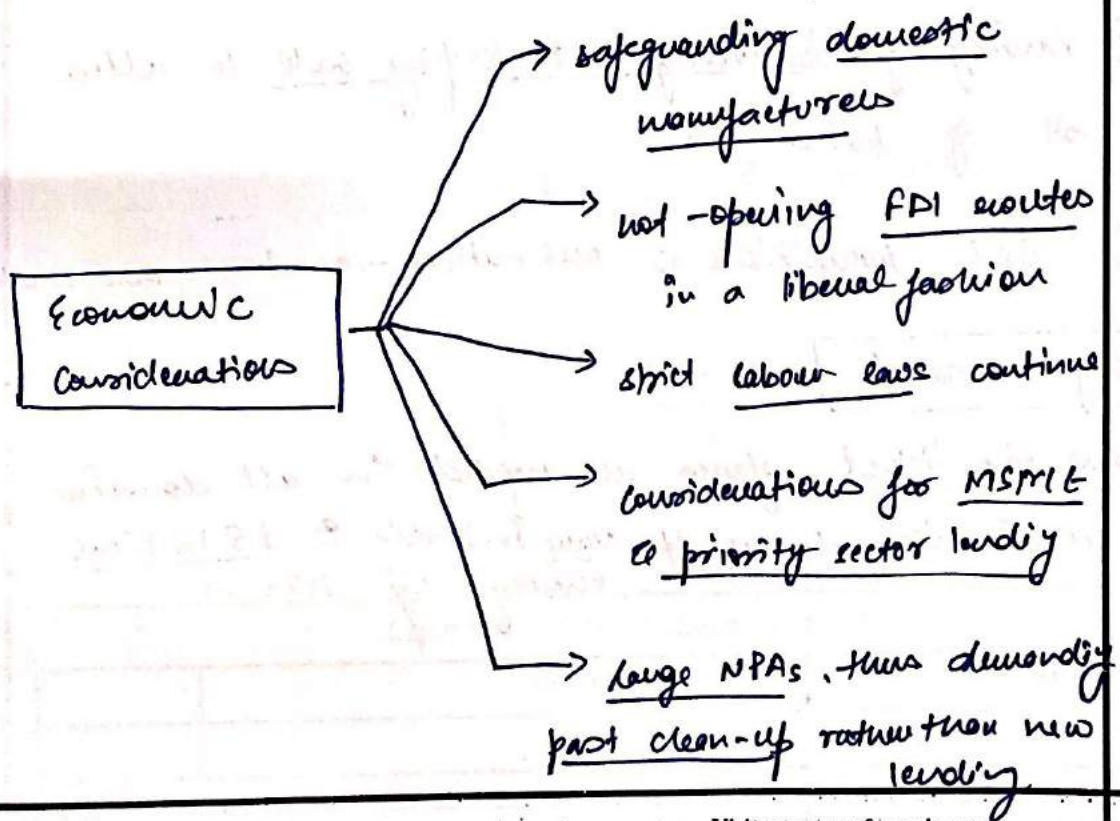 Economic
Considerations
safeguarding domestic
manufacturers
not-opening FDI routes
in a liberal fashion
strict labour laws continue
considerations for MSME
& priority sector lending
large NPAs, thus demanding
past clean-up rather than new
lending